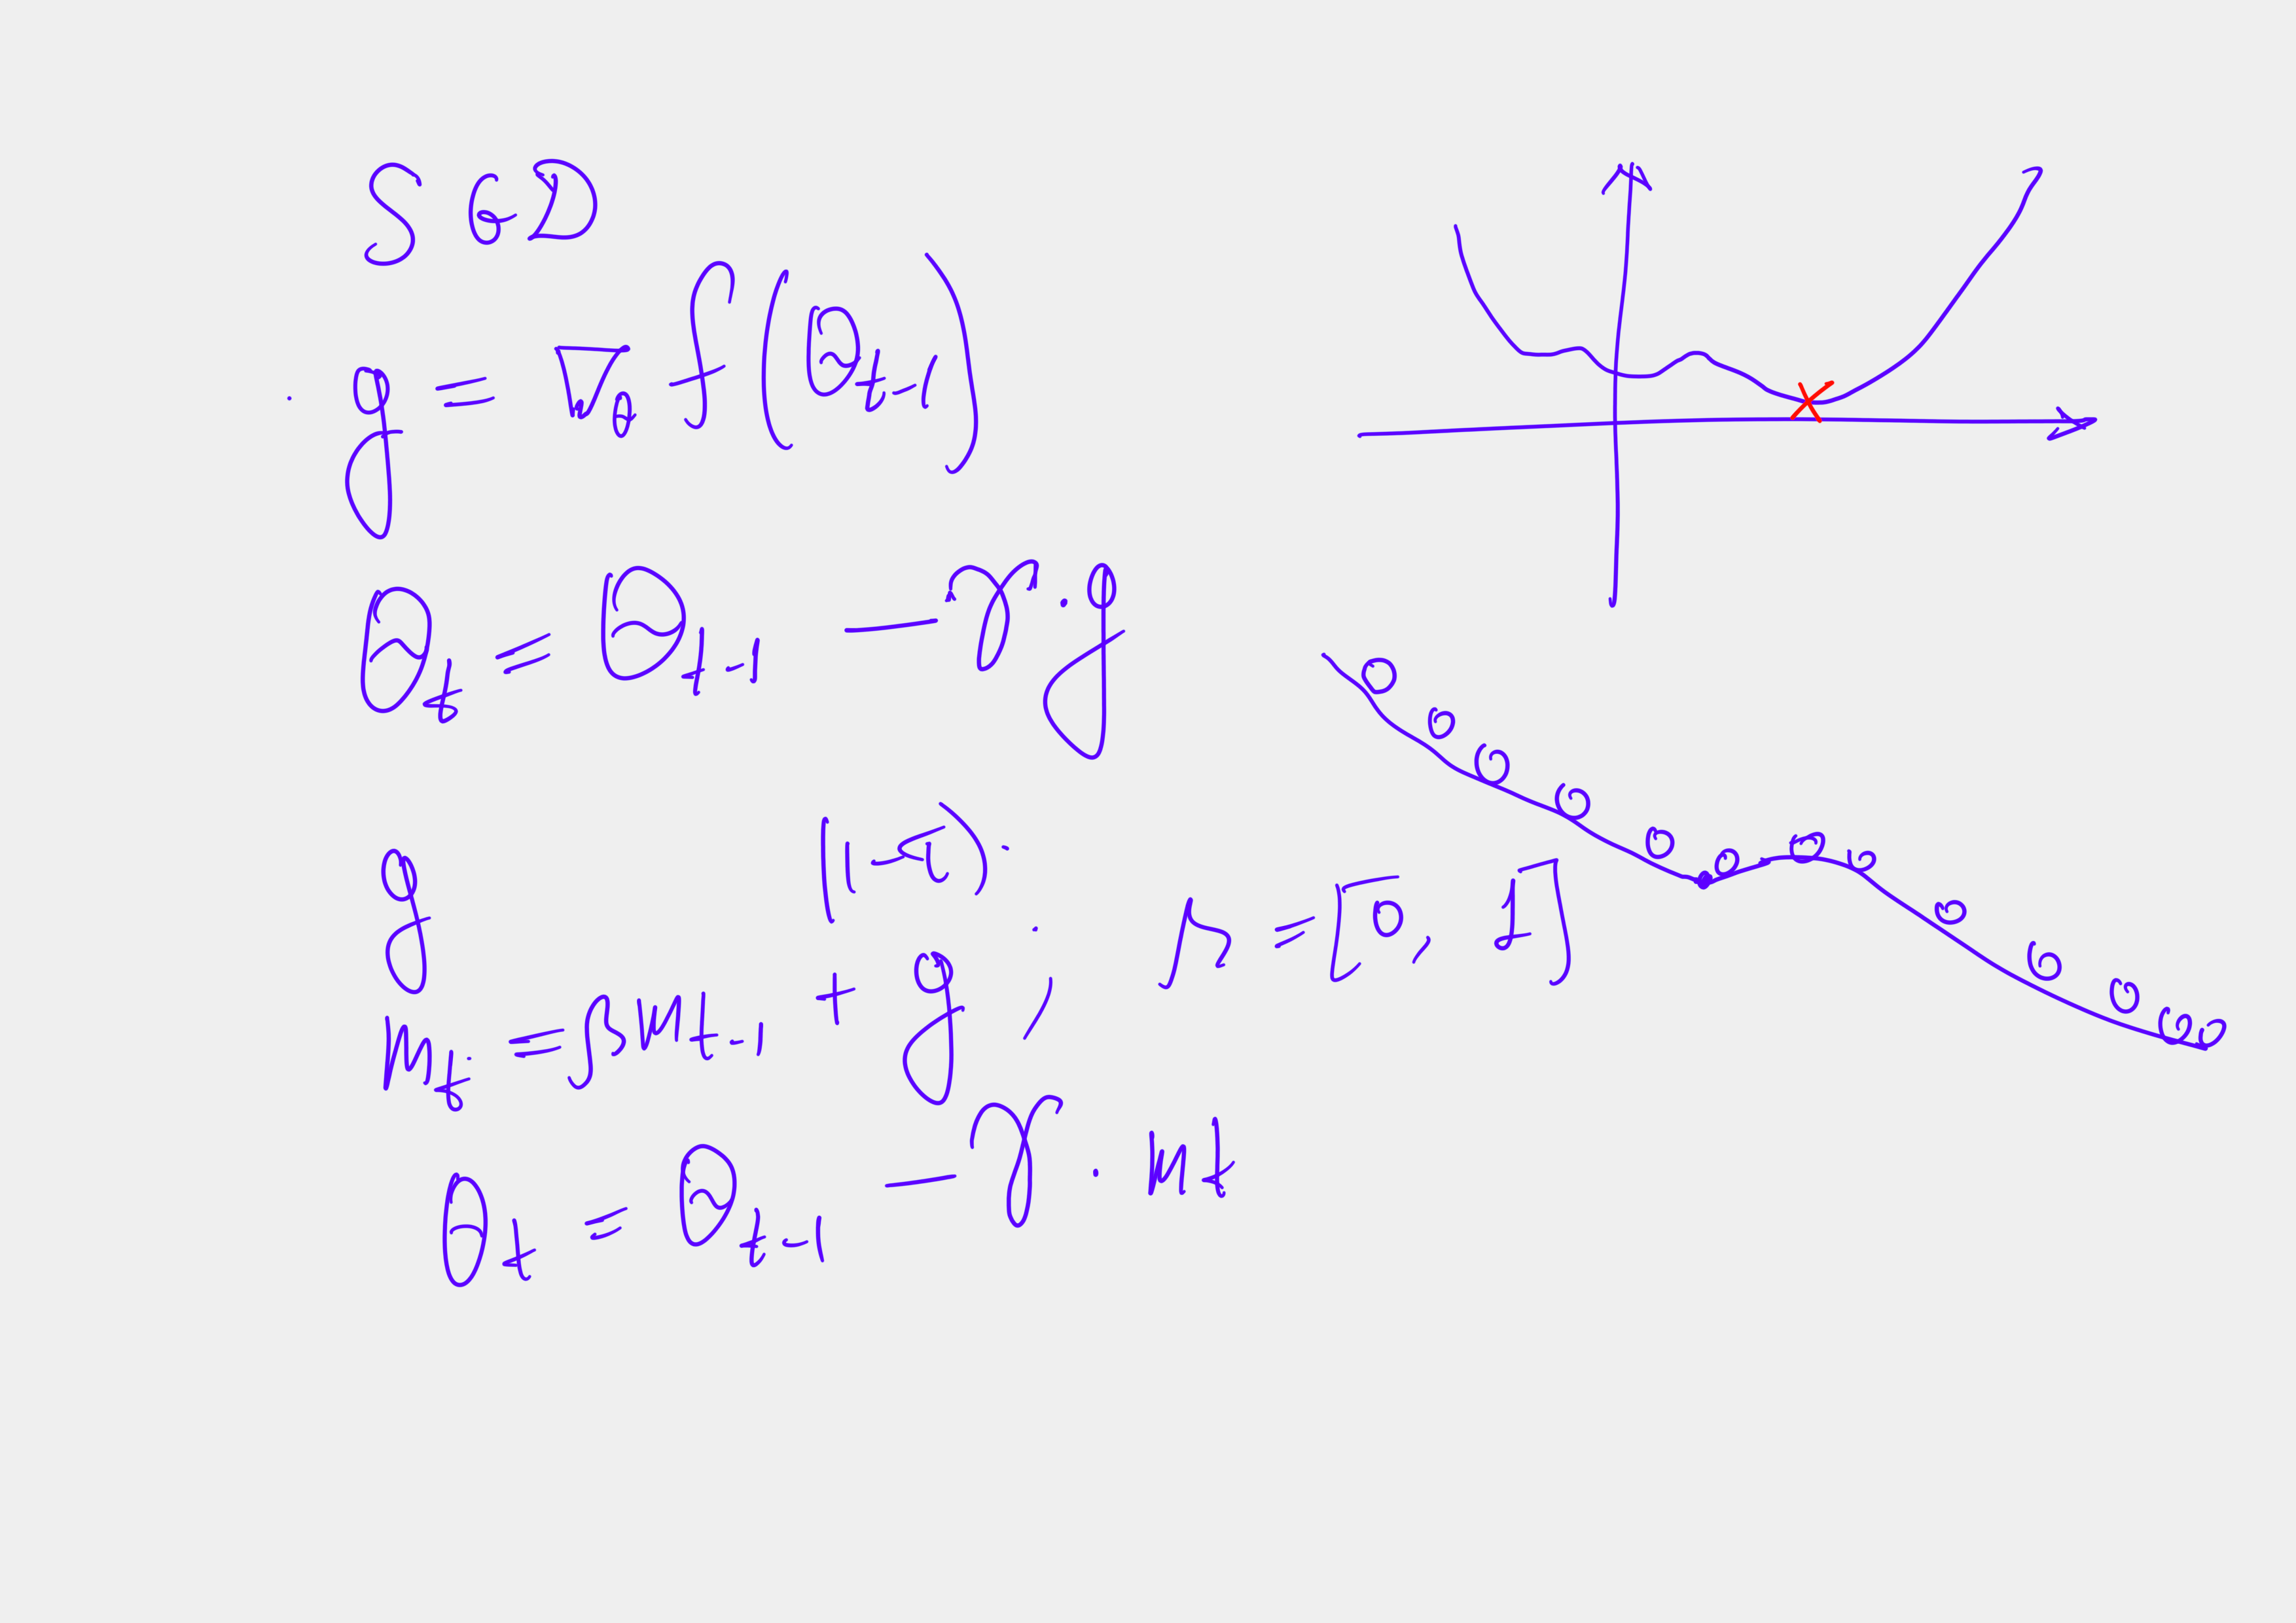 SGD
g = ∇θ f(θt-1)
θt = θt-1 - γ · g
g
(1-τ) ·
mt = βmt-1 + g ; μ = [0, 1]
θt = θt-1 - γ · mt